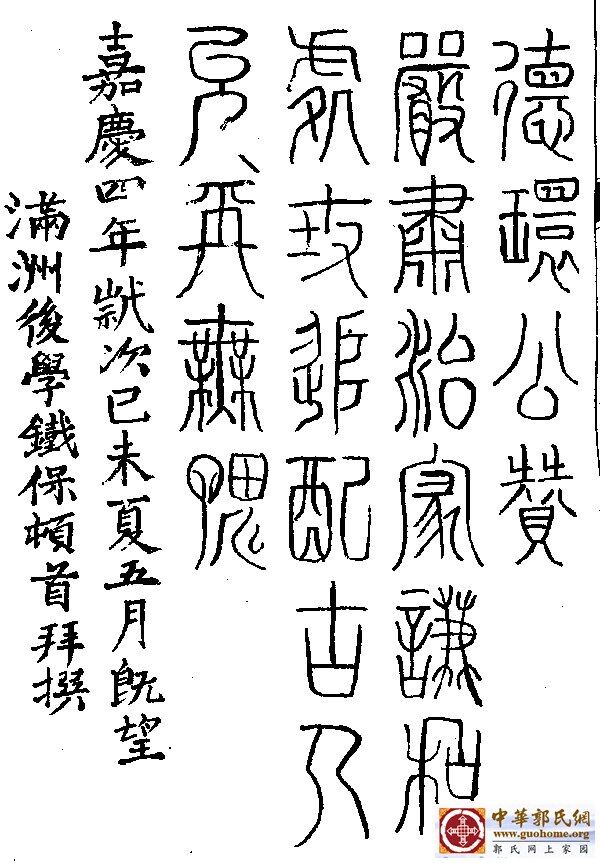 德環公贊
嚴肅治家謙和
處追配古
無愧
嘉慶四年歲次己未夏五月既望
滿洲後學鐵保頓首拜撰
中華郭氏網
www.guohome.org
郭氏网上家园